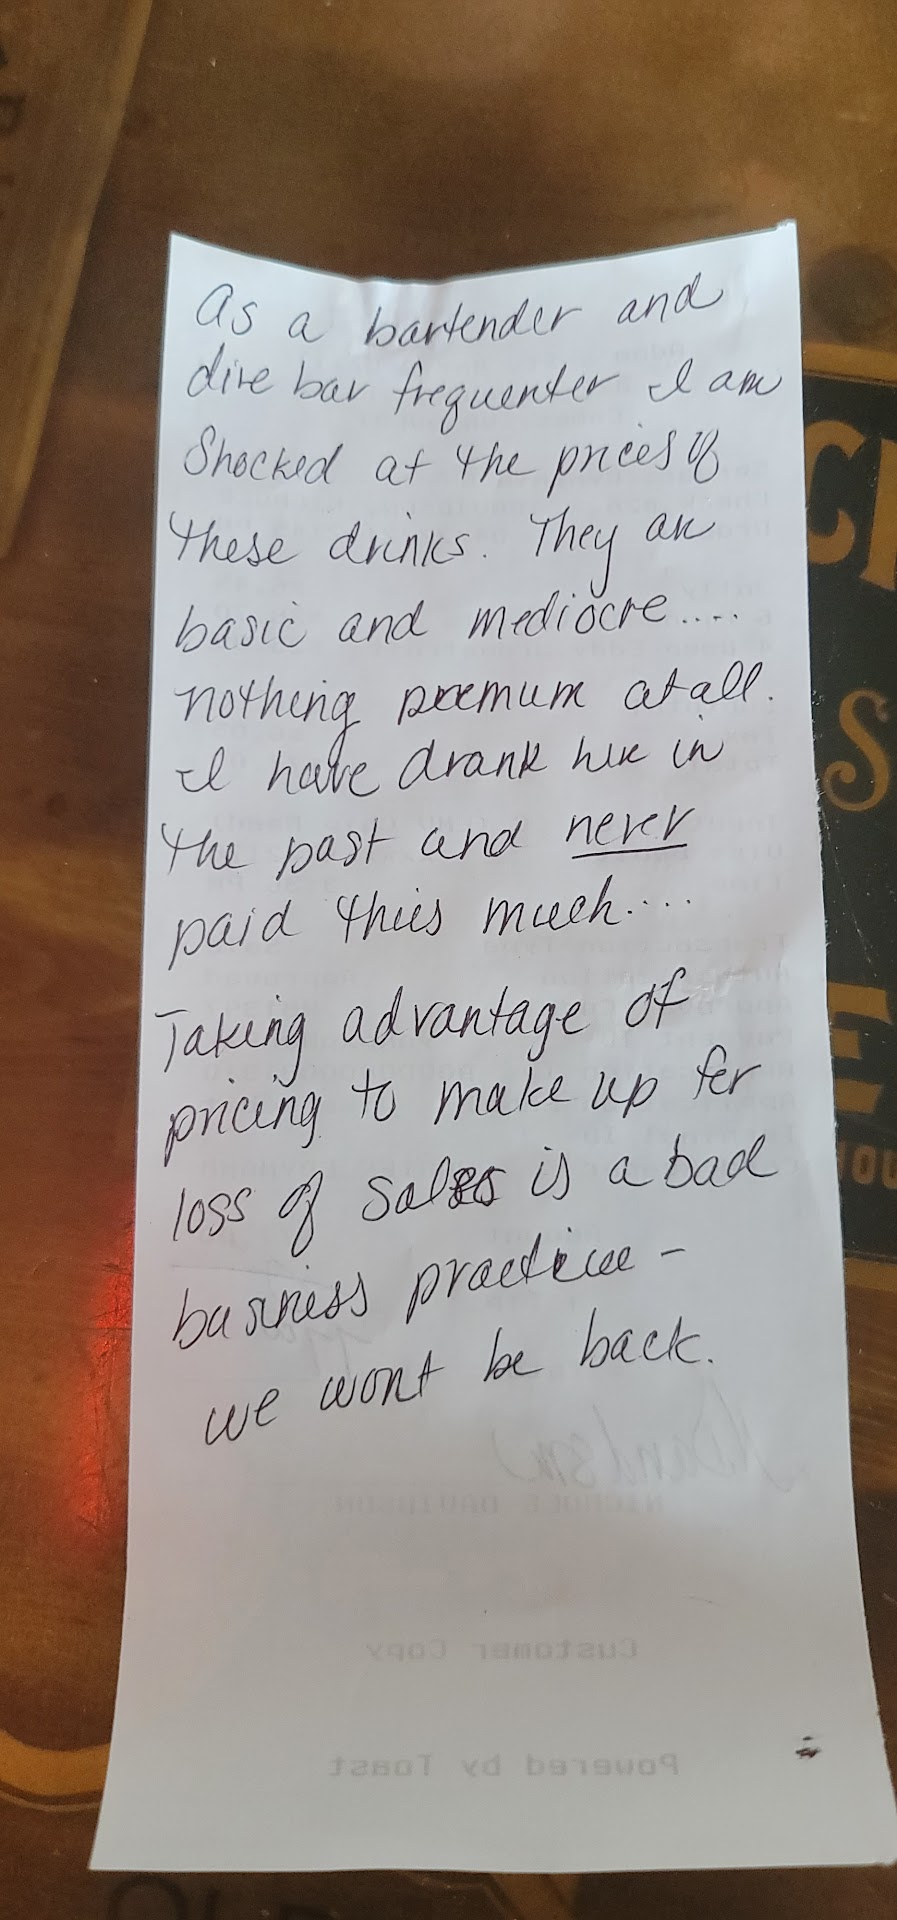 As a bartender and
dive bar frequenter I am
Shocked at the prices of
these drinks. They are
basic and mediocre....
nothing premum at all.
I have drank here in
the past and never
paid this much....
Taking advantage of
pricing to make up for
loss of sales is a bad
business practice -
we wont be back.
NICHOLE DAVIDSON
Customer Copy
Powered by Toast